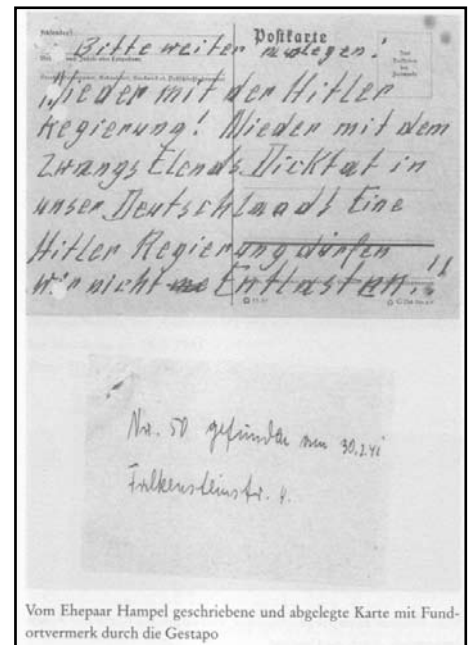 Postkarte
Bitte weiter auslegen!
Nieder mit der Hitler
Regierung! Nieder mit dem
Zwangs Elends Dicktat in
unser Deutschlaadt Eine
Hitler Regierung dürfen
wir nicht Entlasten.!!
Nr. 50 gefunden am
Falkensteinstr. 4.
Vom Ehepaar Hampel geschriebene und abgelegte Karte mit Fund-
ortvermerk durch die Gestapo